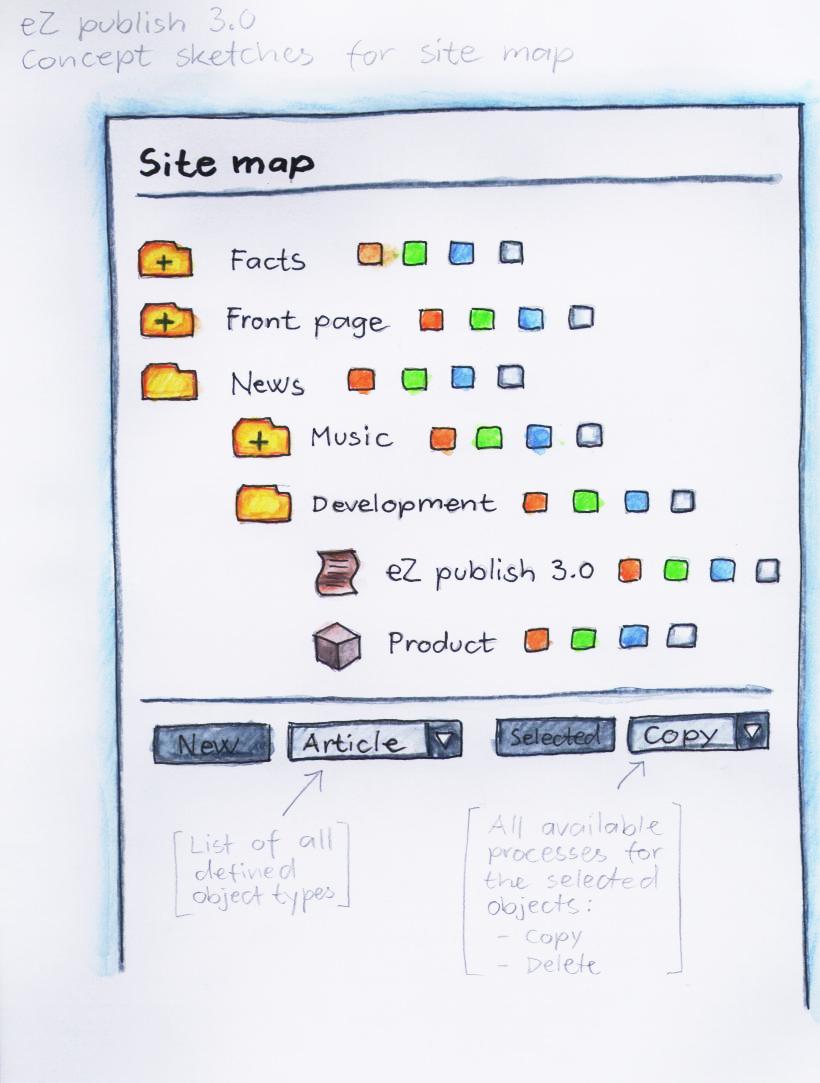 eZ publish 3.0
Concept sketches for site map
Site map
+ Facts
+ Front page
News
+ Music
Development
eZ publish 3.0
Product
New Article Selected Copy
[List of all
defined
object types]
[All available
processes for
the selected
objects:
- Copy
- Delete]